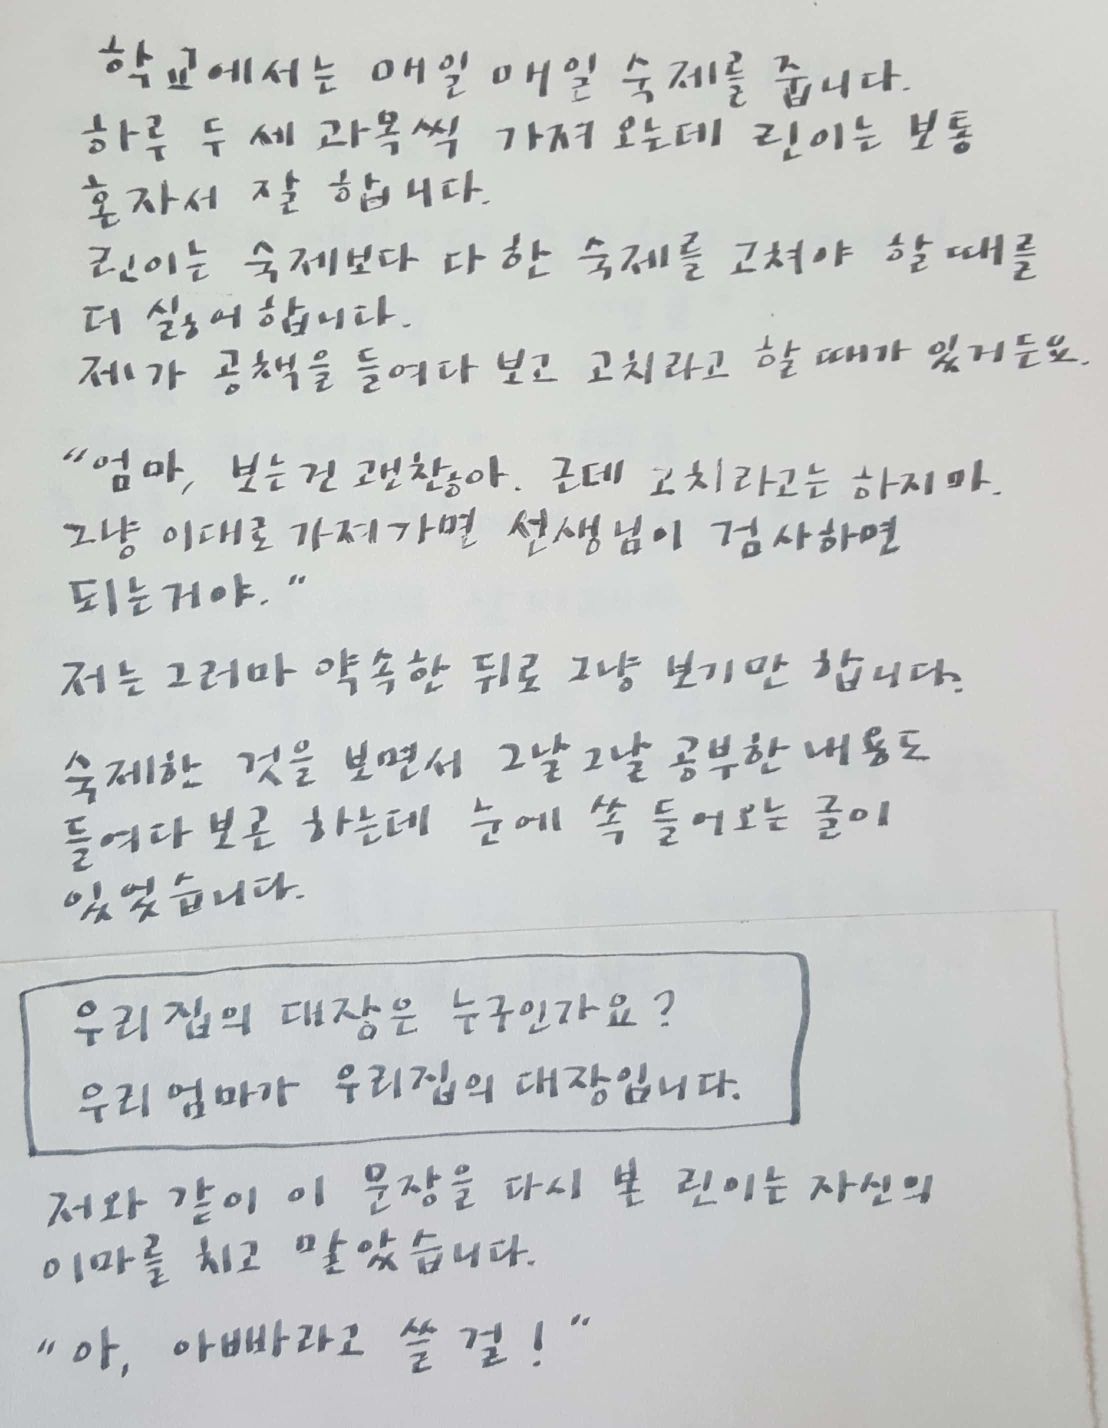 학교에서는 매일 매일 숙제를 줍니다.
하루 두 세 과목씩 가져 오는데 린이는 보통
혼자서 잘 합니다.
린이는 숙제보다 다 한 숙제를 고쳐야 할 때를
더 싫어 합니다.
제가 공책을 들여다 보고 고치라고 할 때가 있거든요.
"엄마, 보는건 괜찮아. 근데 고치라고는 하지마.
그냥 이대로 가져가면 선생님이 검사하면
되는거야."
저는 그러마 약속한 뒤로 그냥 보기만 합니다.
숙제한 것을 보면서 그날 그날 공부한 내용도
들여다 보곤 하는데 눈에 쏙 들어오는 글이
있었습니다.
우리집의 대장은 누구인가요?
우리 엄마가 우리집의 대장입니다.
저와 같이 이 문장을 다시 본 린이는 자신의
이마를 치고 말았습니다.
"아, 아빠라고 쓸 걸!"